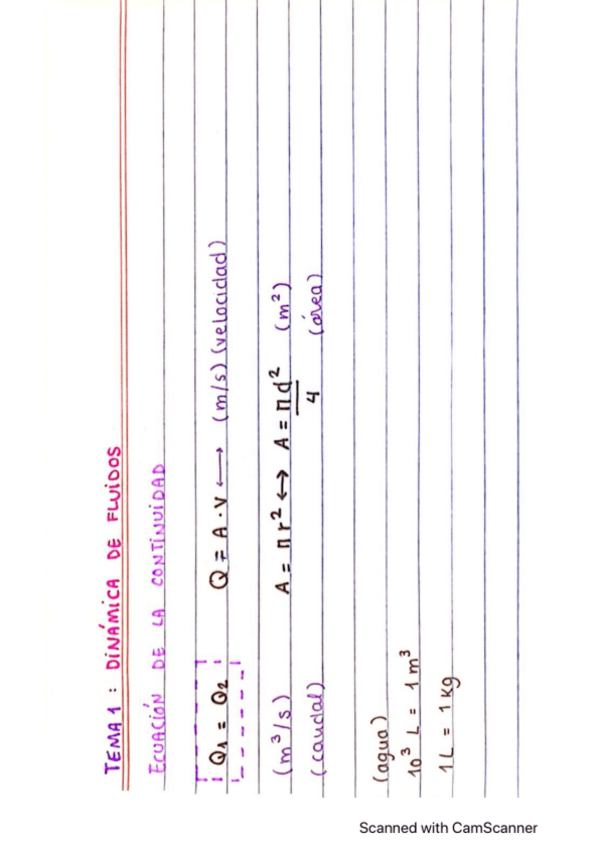 TEMA 1 : DINÁMICA DE FLUIDOS
ECUACIÓN DE LA CONTINUIDAD
Q1 = Q2 Q = A · V ⟷ (m/s) (velocidad)
(m³/s) A = π r² ⟷ A = πd²/4 (m²)
(caudal) (área)
(agua)
10³ L = 1 m³
1 L = 1 kg
Scanned with CamScanner